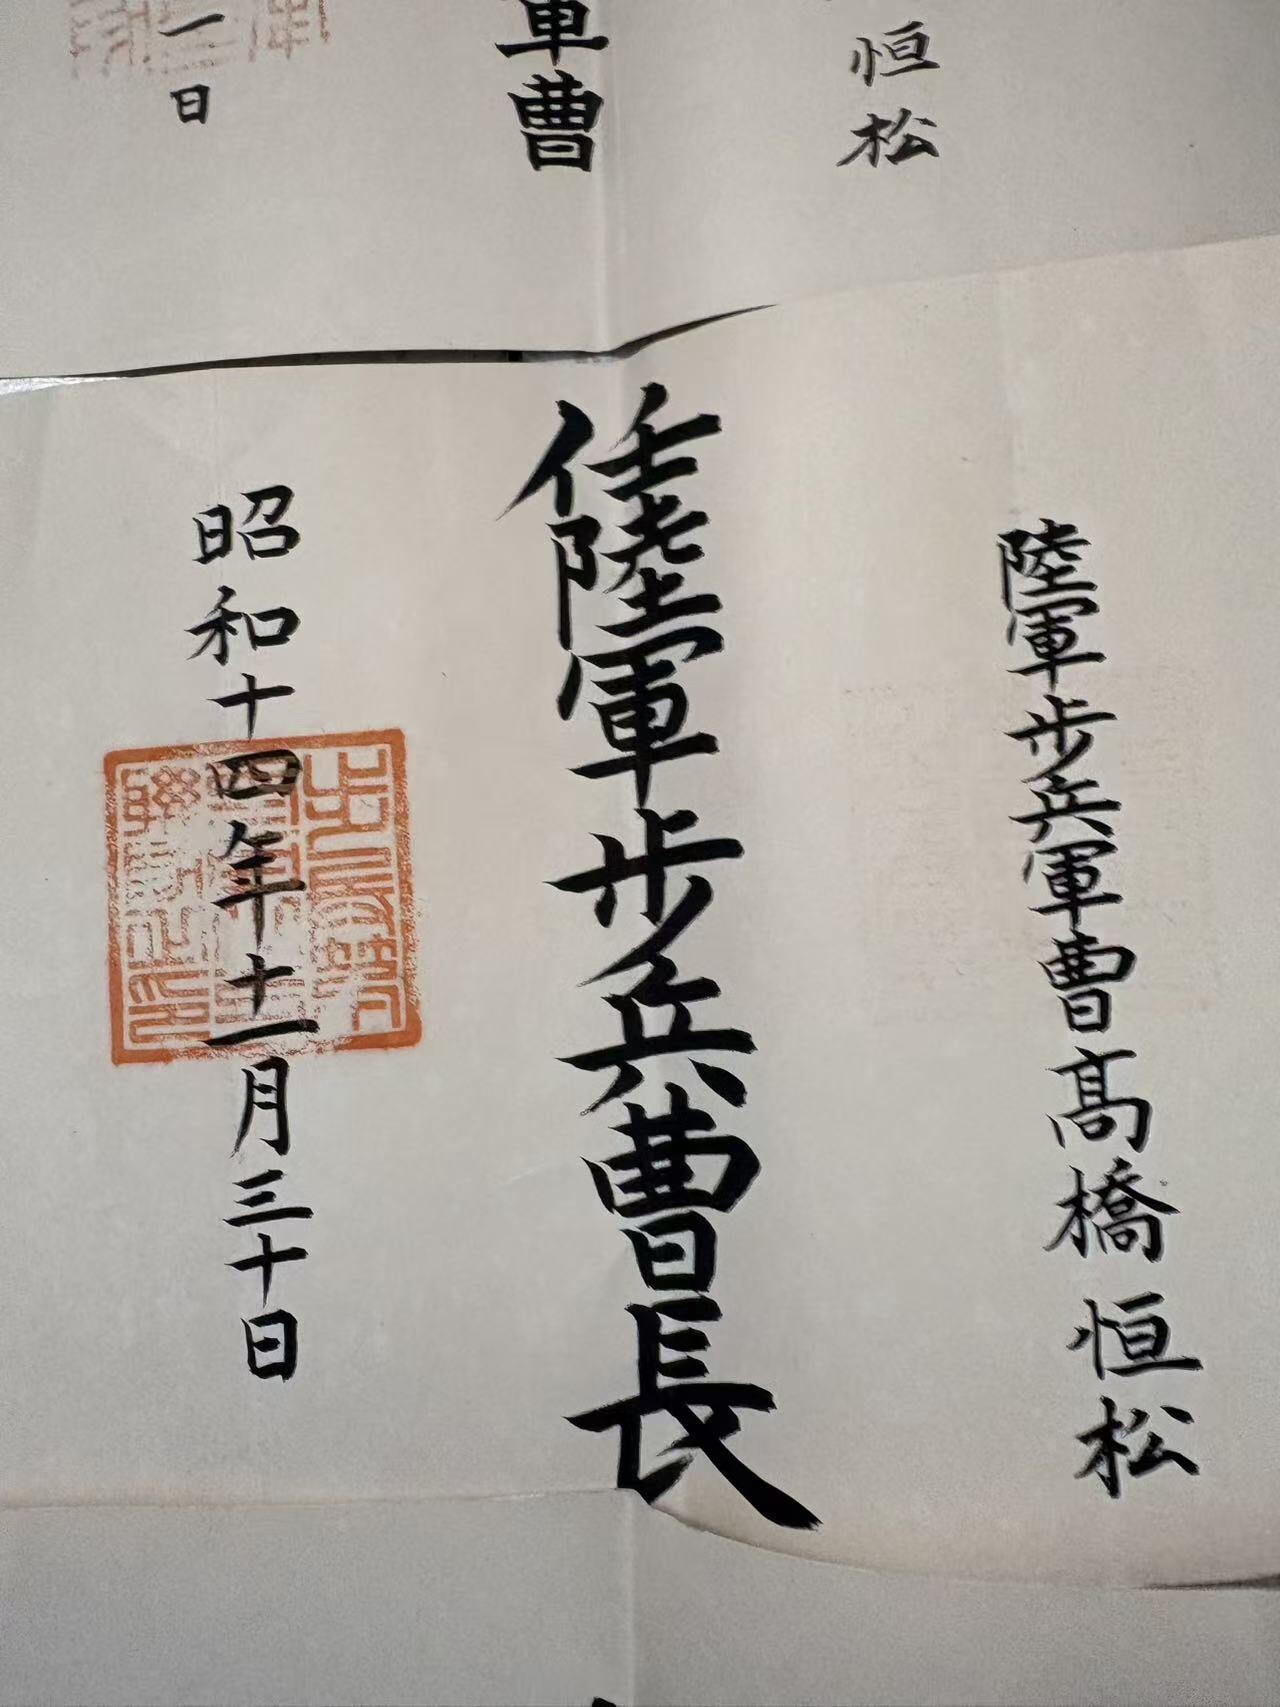 恒松
軍曹
一日
陸軍步兵軍曹髙橋恒松
任陸軍步兵曹長
昭和十四年十一月三十日